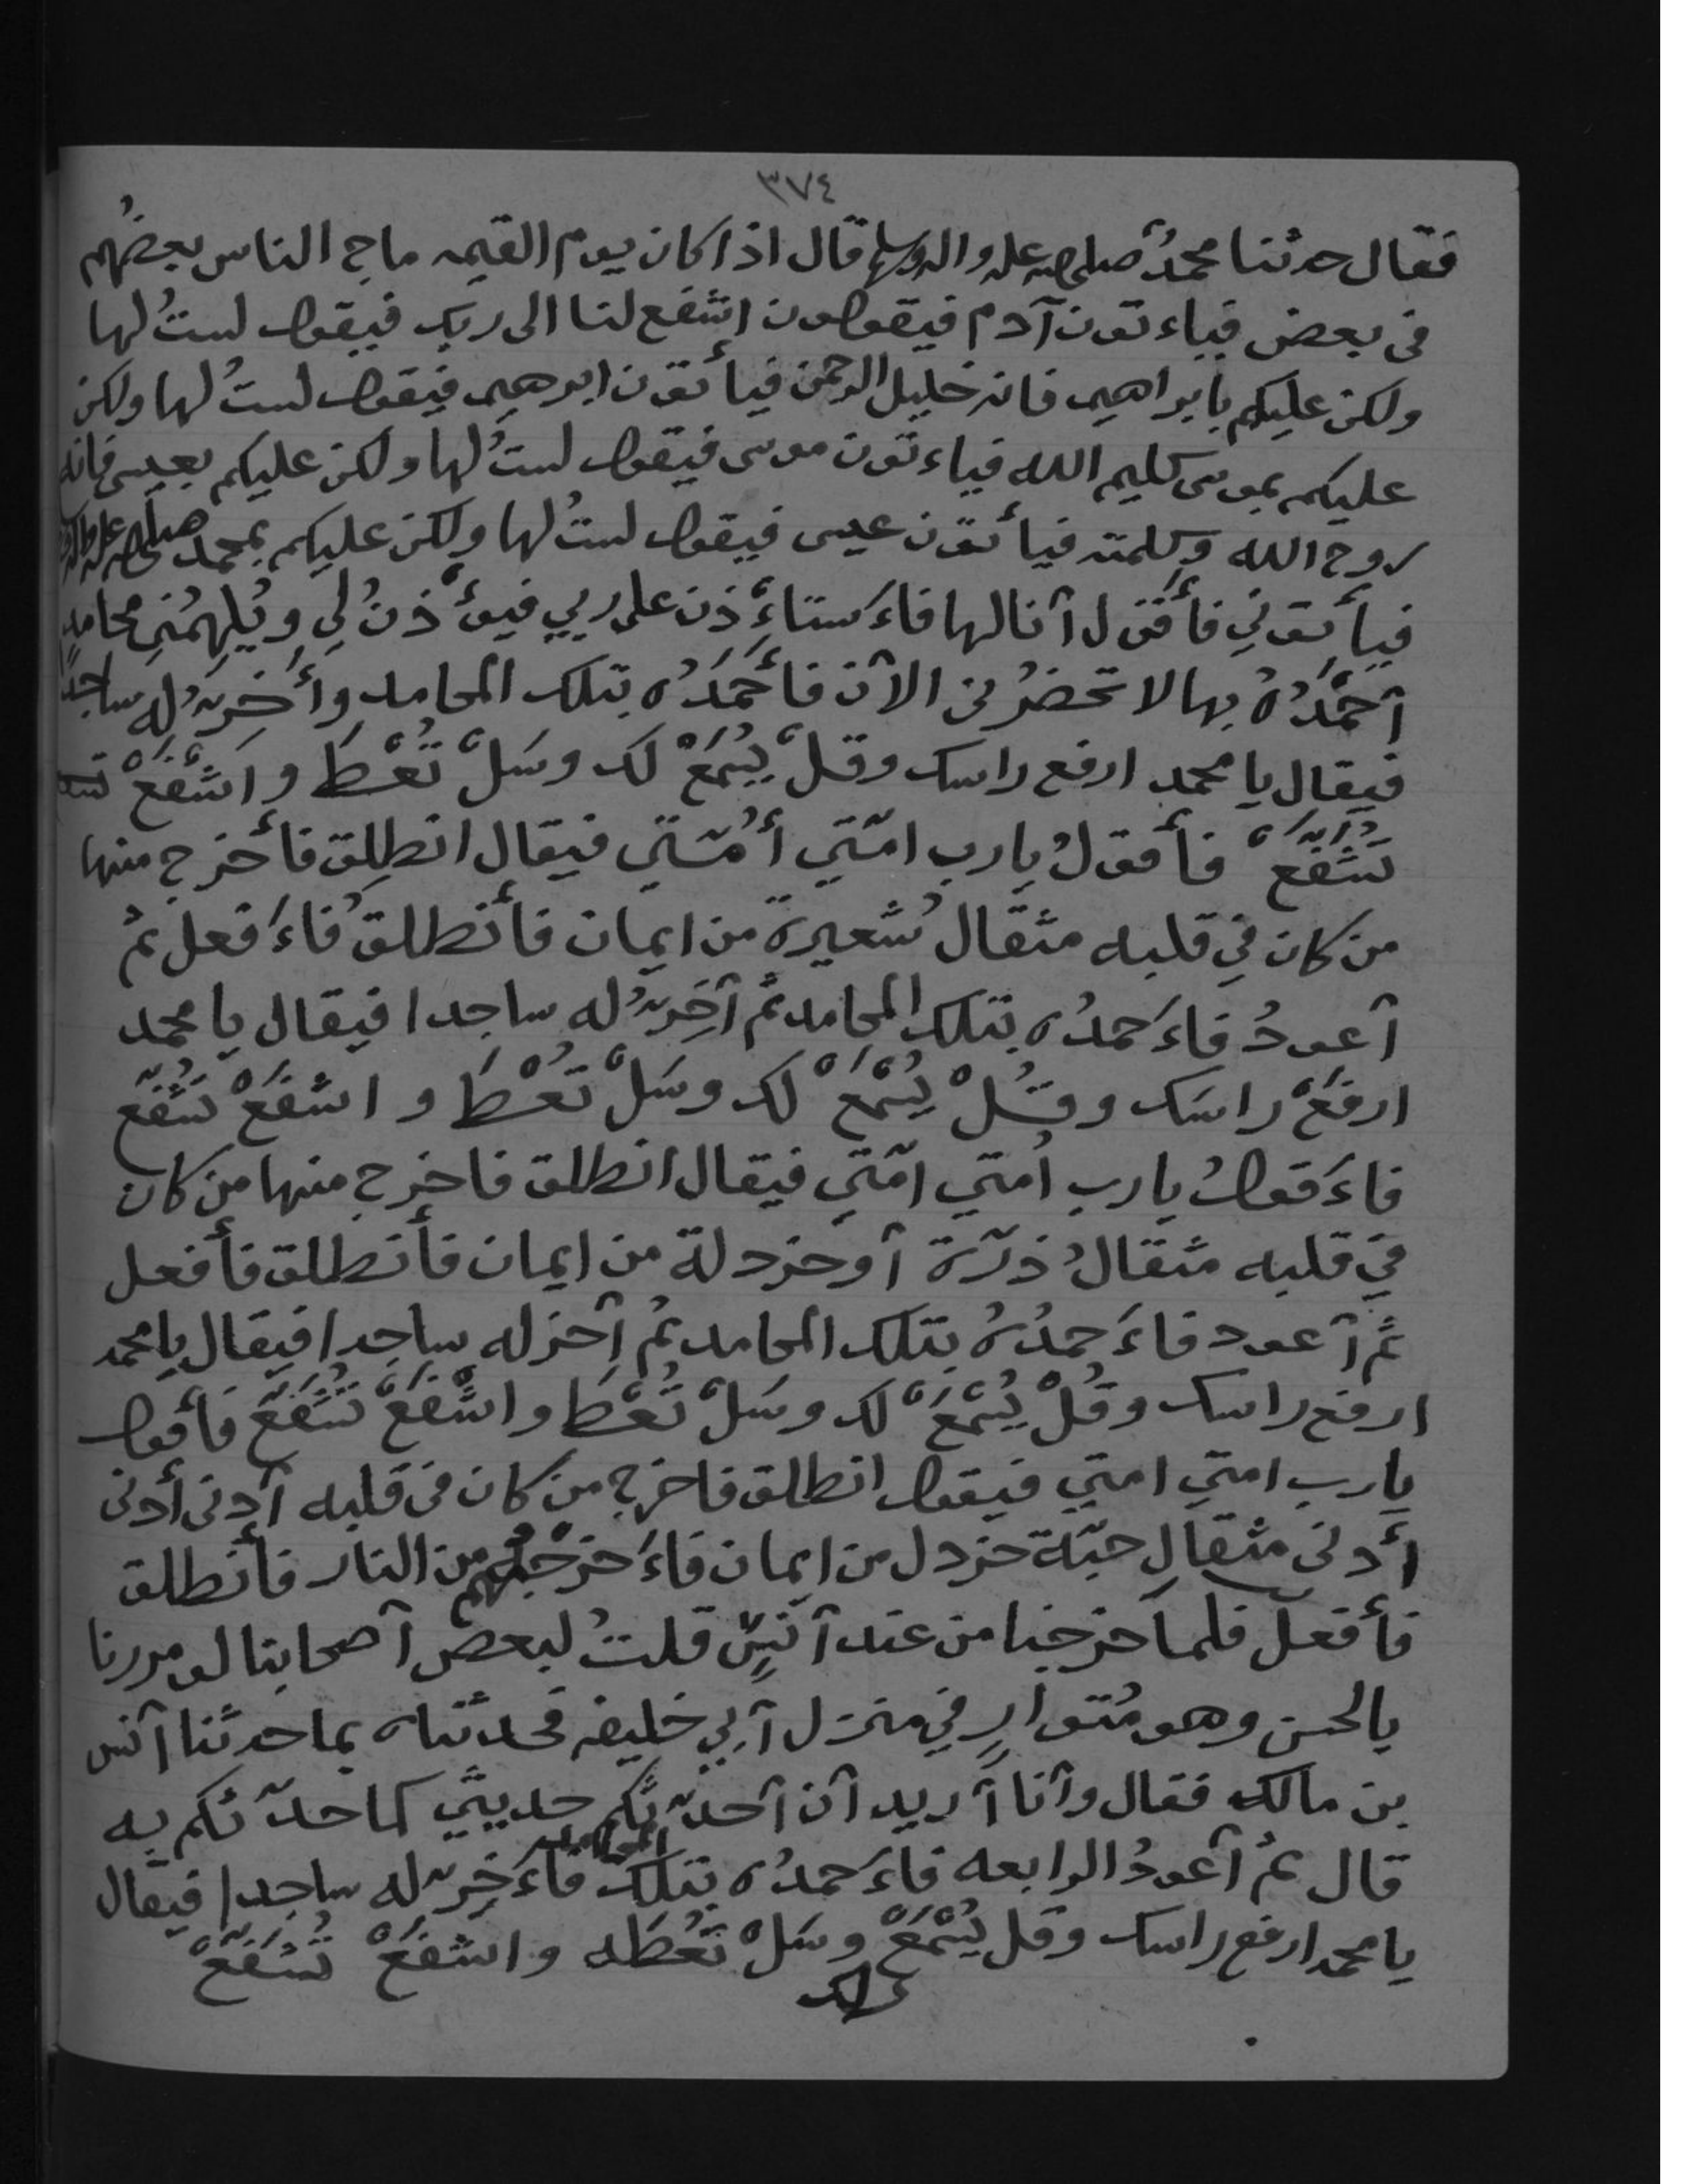 ٣٧٤
فقال حدثنا محمدٌ صلى الله عليه واله وسلم قال اذا كان يوم القيمه ماج الناس بعضُهم
فى بعض فياءتون آدم فيقولون اشفع لنا الى ربك فيقول لستُ لها
ولكن عليكم بابراهيم فانه خليل الرحمن فيأتون ابرهيم فيقول لستُ لها ولكن
عليكم بموسى كليم الله فياءتون موسى فيقول لستُ لها ولكن عليكم بعيسى فانه
روح الله وكلمته فيأتون عيسى فيقول لستُ لها ولكن عليكم بمحمد صلى الله عليه واله
فيأتوني فأقول آنا لها فاءَستاءَذن على ربي فيوءذنُ لي ويُلهِمُني محامدٍ
آحمَدُهُ بها لا تحضرُنى الآن فأحمَدُه بتلك المحامد وأَخِرّ له ساجدًا
فيقال يا محمد ارفع راسك وقلْ يُسْمَعْ لك وسَلْ تُعْطَ واشْفَعْ تشـ
تُشَفَّعْ فأقولُ يا رب امّتي أُمّتي فيقال انطلِق فأخرج منها
من كان في قلبه مثقال شعيرة من ايمان فأنطلقُ فاءَفعل ثمُ
آعودُ فاءَحمدُه بتلك المحامد ثم آخِرّ له ساجدا فيقال يا محمد
ارفَعْ راسَك وقُلْ يُسْمَعْ لك وسَلْ تُعْطَ و اشفَعْ تُشَفّع
فاءَقولُ يا رب اُمتي امّتي فيقال انطلق فاخرج منها من كان
في قلبه مثقالُ ذرّة آو خردلة من ايمان فأنطلق فأفعل
ثمُ آعود فاءَحمدُهُ بتلك المحامد ثمُ آخر له ساجدا فيقال يا محمد
ارفع راسك وقُلْ يُسْمَعْ لك وسَلْ تُعْطَ واشْفَعْ تُشَفّعْ فأقول
يا رب امتي امتي فيقول انطلق فاخرج من كان فى قلبه آدنى أدنى
أدنى مثقالِ حبّة خردل من ايمان فاءَخرجْهُم من النار فأنطلق
فأفعل فلما خرجنا من عند آنسٍ قلتُ لبعض آصحابنا لو مررنا
بالحسن وهو مُتوارٍ في منزل آبي خليفه فحدثناه بما حدثنا آنس
بن مالك فقال وآنا آريد آن آحدّثكم حديثي كما حدّثكم به
قال ثمُ آعودُ الرابعه فاءَحمدُه بتلك المحامد فاءَخِرّ له ساجدا فيقال
يا محمد ارفع راسك وقل يُسْمَعْ وسَلْ تُعْطَه واشفَعْ تُشَفّعْ
لك